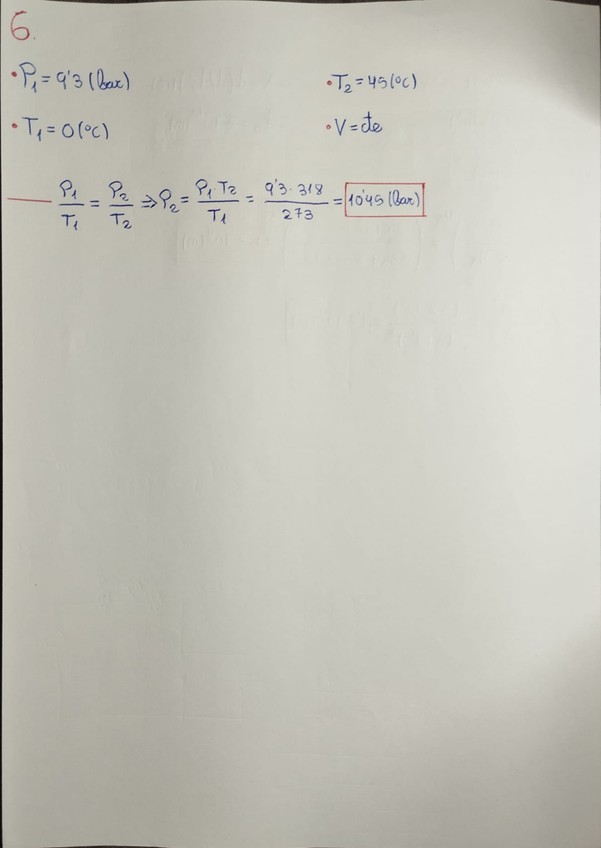 6.
• P₁ = 9'3 (bar) • T₂ = 45 (ºC)
• T₁ = 0 (ºC) • V = cte
P₁/T₁ = P₂/T₂ => P₂ = P₁ T₂/T₁ = 9'3 · 318/273 = 10'45 (bar)